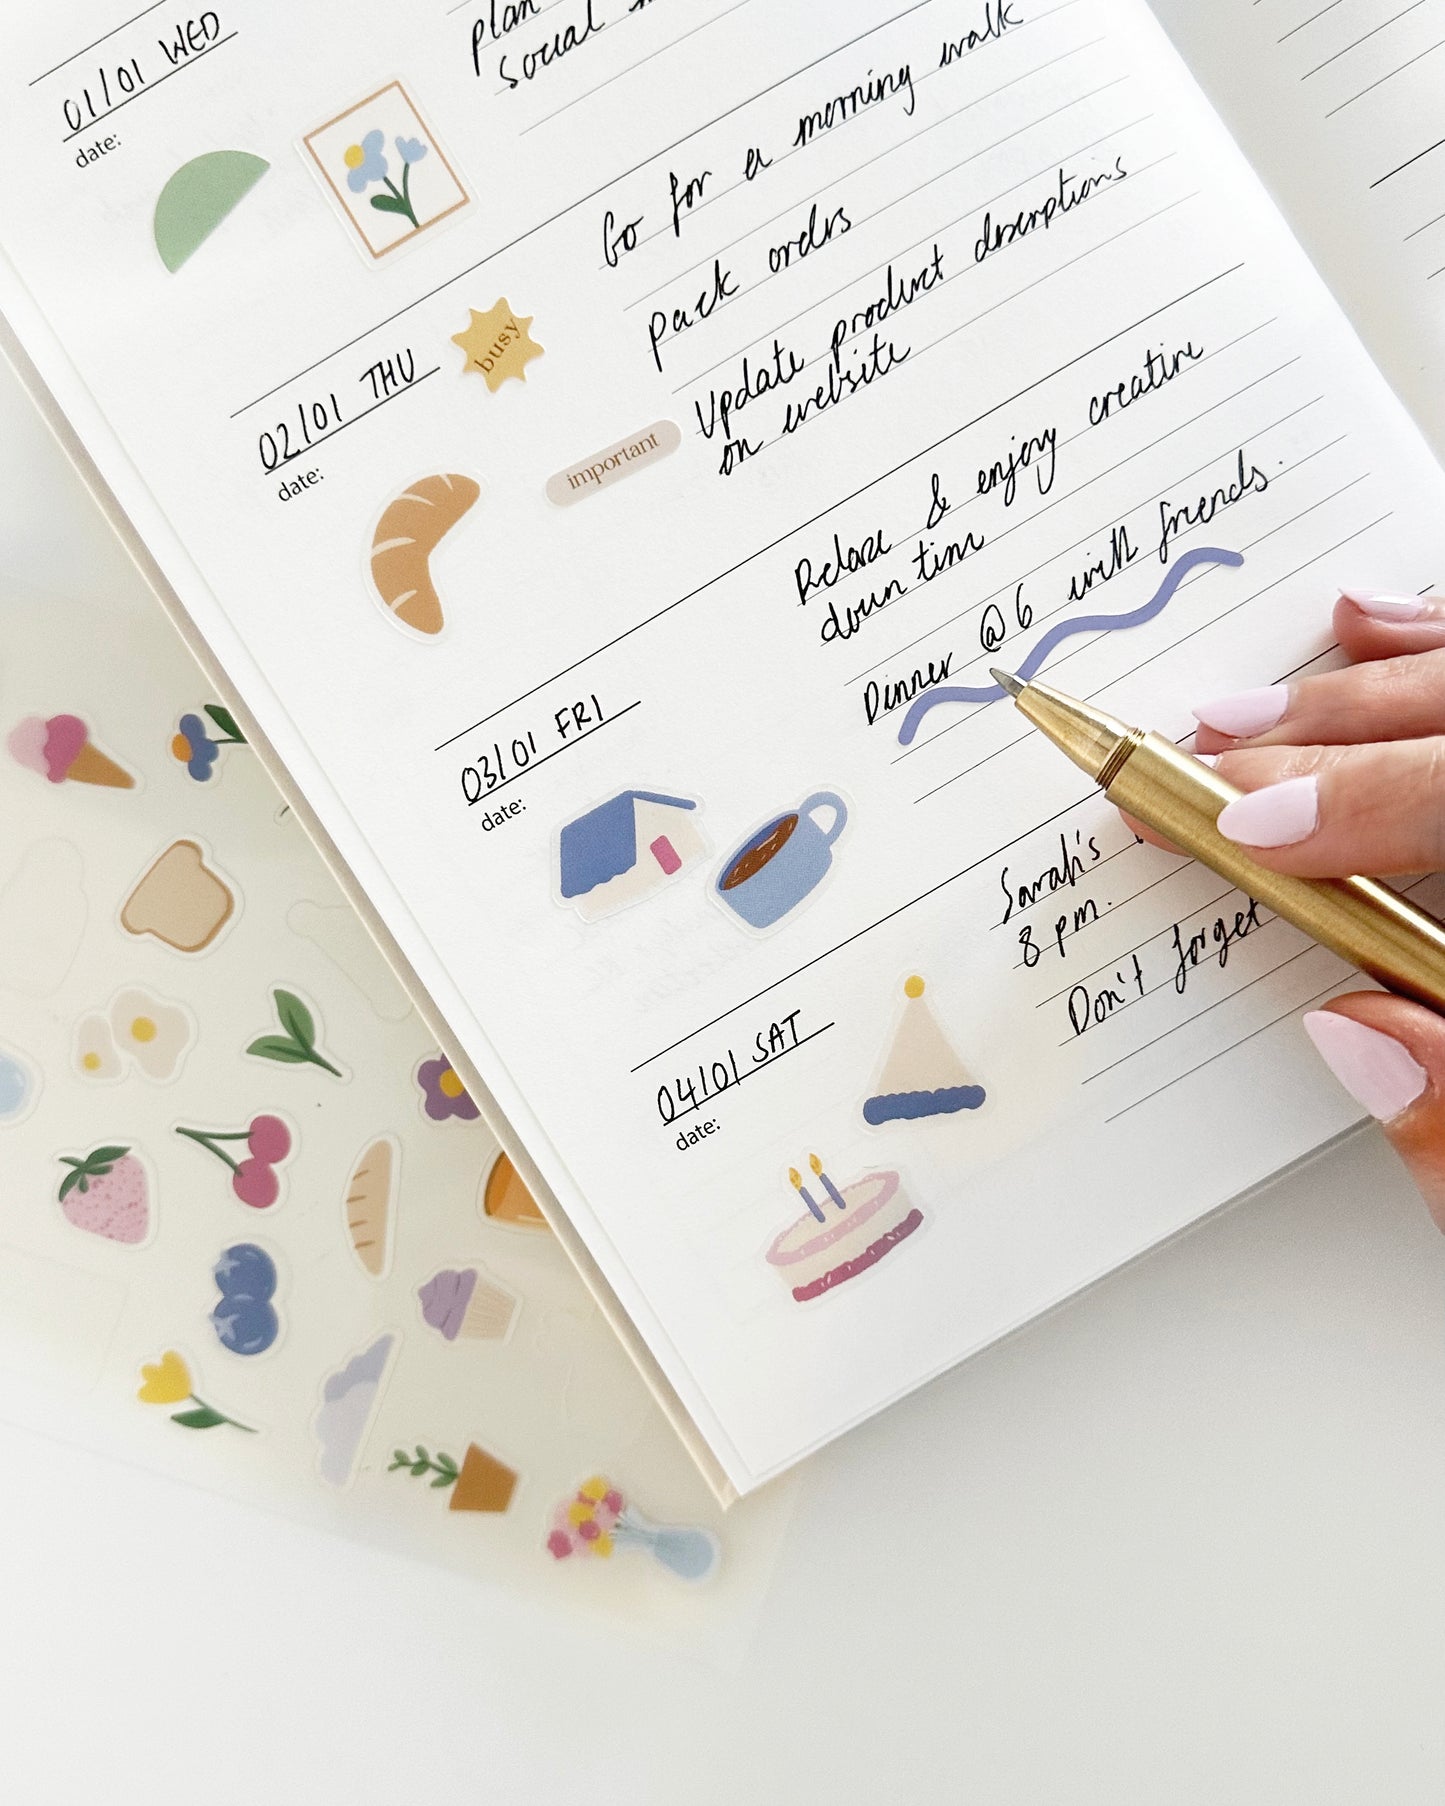 plan
Social
01/01 WED
date:
Go for a morning walk
pack orders
busy
02/01 THU
date:
important
Update product descriptions
on website
Relax & enjoy creative
down time
Dinner @ 6 with friends.
03/01 FRI
date:
Sarah's
8 pm.
Don't forget
04/01 SAT
date: